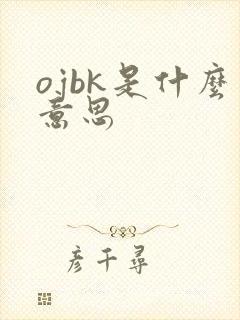 ojbk是什麼
意思
彦千尋